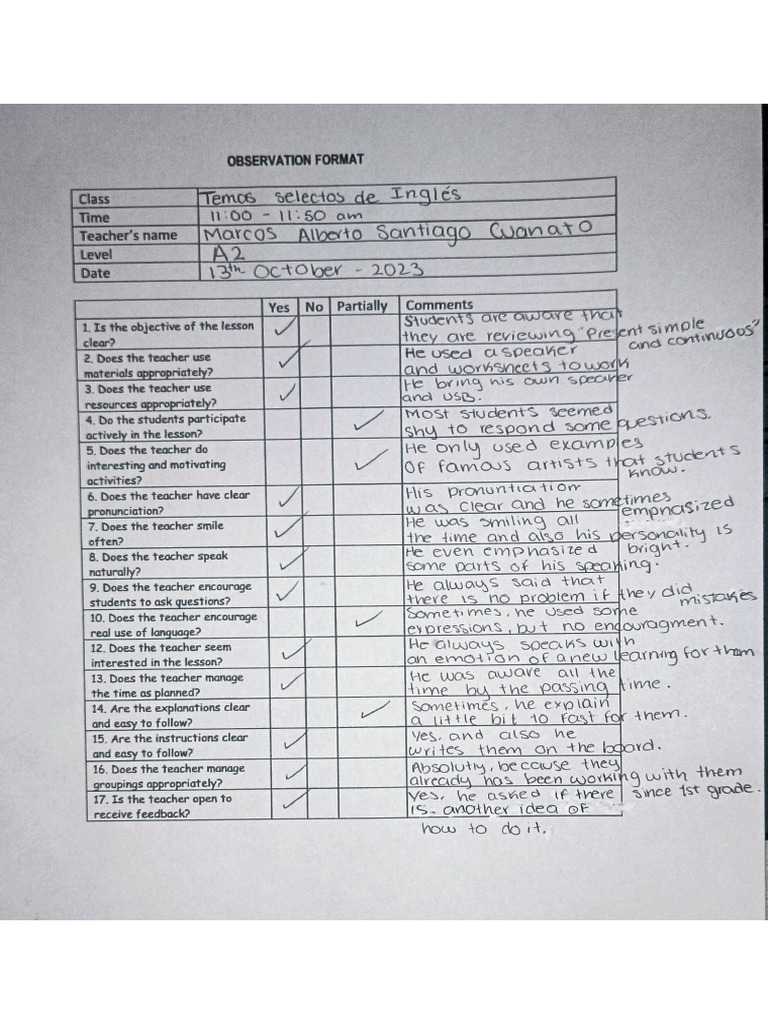 OBSERVATION FORMAT
Class Temas selectos de Inglés
Time 11:00 - 11:50 am
Teacher's name Marcos Alberto Santiago Cuanato
Level A2
Date 13th October - 2023
Yes No Partially Comments
1. Is the objective of the lesson clear? ✓ Students are aware that they are reviewing "Present simple and continuous"
2. Does the teacher use materials appropriately? ✓ He used a speaker and worksheets to work
3. Does the teacher use resources appropriately? ✓ He bring his own speaker and USB.
4. Do the students participate actively in the lesson? ✓ Most students seemed shy to respond some questions.
5. Does the teacher do interesting and motivating activities? ✓ He only used examples of famous artists that students know.
6. Does the teacher have clear pronunciation? ✓ His pronuntiation was clear and he sometimes emphasized
7. Does the teacher smile often? ✓ He was smiling all the time and also his personality is bright.
8. Does the teacher speak naturally? ✓ He even emphasized some parts of his speaking.
9. Does the teacher encourage students to ask questions? ✓ He always said that there is no problem if they did mistakes
10. Does the teacher encourage real use of language? ✓ Sometimes, he used some expressions, but no encouragment.
12. Does the teacher seem interested in the lesson? ✓ He always speaks with an emotion of a new learning for them
13. Does the teacher manage the time as planned? ✓ He was aware all the time by the passing time.
14. Are the explanations clear and easy to follow? ✓ Sometimes, he explain a little bit to fast for them.
15. Are the instructions clear and easy to follow? ✓ Yes, and also he writes them on the board.
16. Does the teacher manage groupings appropriately? ✓ Absolutly, because they already has been working with them since 1st grade.
17. Is the teacher open to receive feedback? ✓ Yes, he asked if there is another idea of how to do it.